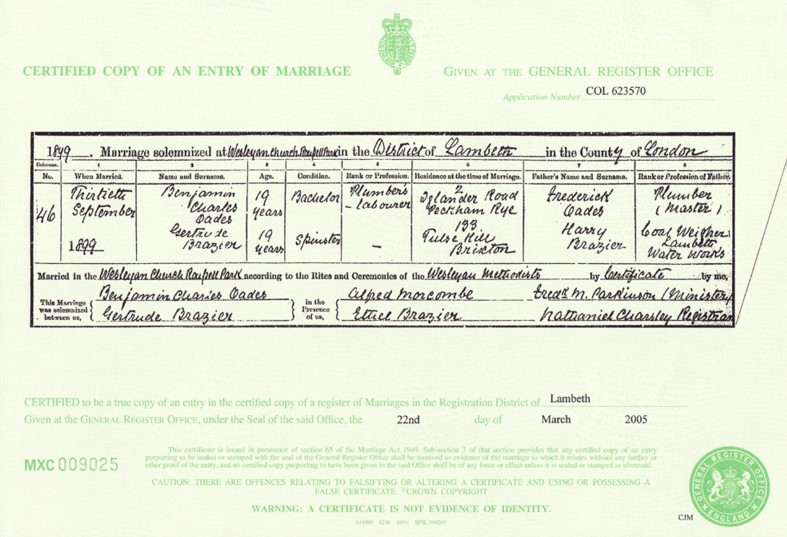 CERTIFIED COPY OF AN ENTRY OF MARRIAGE
GIVEN AT THE GENERAL REGISTER OFFICE
Application Number COL 623570
1899. Marriage solemnized at Wesleyan Church Roupell Park in the District of Lambeth in the County of London
Columns. 1 2 3 4 5 6 7 8
No. When Married. Name and Surname. Age. Condition. Rank or Profession. Residence at the time of Marriage. Father's Name and Surname. Rank or Profession of Father.
46
Thirtieth
September
1899
Benjamin
Charles
Oades
19
years
Bachelor
Plumber's
labourer
2
Islander Road
Peckham Rye
Frederick
Oades
Plumber
(Master)
Gertrude
Brazier
19
years
Spinster
—
133
Tulse Hill
Brixton
Harry
Brazier
Coal Weigher
Lambeth
Water Works
Married in the Wesleyan Church Roupell Park according to the Rites and Ceremonies of the Wesleyan Methodists by Certificate by me,
This Marriage
was solemnized
between us,
Benjamin Charles Oades
Gertrude Brazier
in the
Presence
of us,
Alfred Morcombe
Ethel Brazier
Fredk M. Parkinson (Minister)
Nathaniel Charsley Registrar
CERTIFIED to be a true copy of an entry in the certified copy of a register of Marriages in the Registration District of Lambeth
Given at the GENERAL REGISTER OFFICE, under the Seal of the said Office, the 22nd day of March 2005
MXC 009025
This certificate is issued in pursuance of section 65 of the Marriage Act 1949. Sub-section 3 of that section provides that any certified copy of an entry
purporting to be sealed or stamped with the seal of the General Register Office shall be received as evidence of the marriage to which it relates without any further or
other proof of the entry, and no certified copy purporting to have been given in the said Office shall be of any force or effect unless it is sealed or stamped as aforesaid.
CAUTION: THERE ARE OFFENCES RELATING TO FALSIFYING OR ALTERING A CERTIFICATE AND USING OR POSSESSING A
FALSE CERTIFICATE. ©CROWN COPYRIGHT
WARNING: A CERTIFICATE IS NOT EVIDENCE OF IDENTITY.
CJM
GENERAL REGISTER OFFICE
ENGLAND